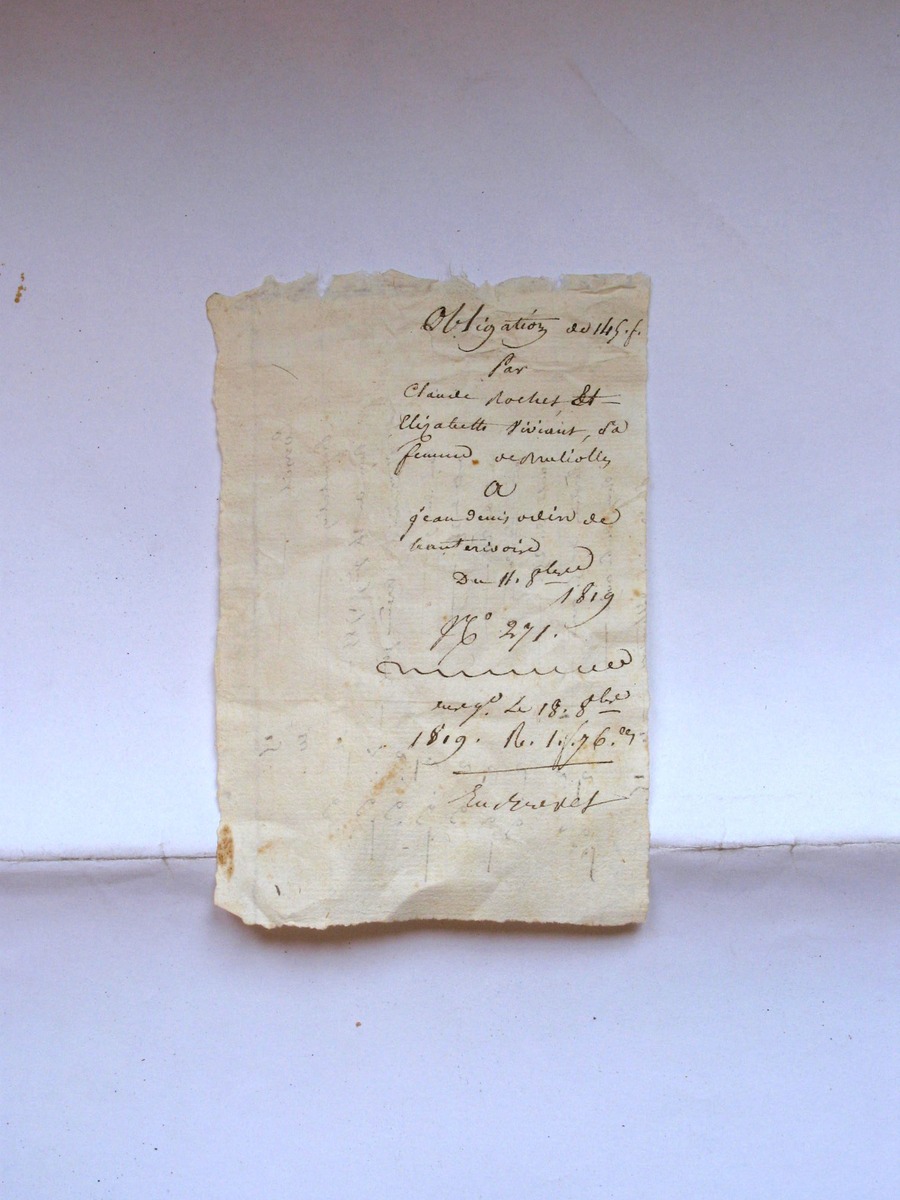 Obligation de 145. f.
Par
Claude Rochet Et
Elizabette Viviant, Sa
femme de Bruliolles
A
jean denis odin de
hauterivoire
Du 11. 8bre
1819
No 271.
enregé. Le 18. 8bre
1819. R. 1. f 76. ces
En Brevet